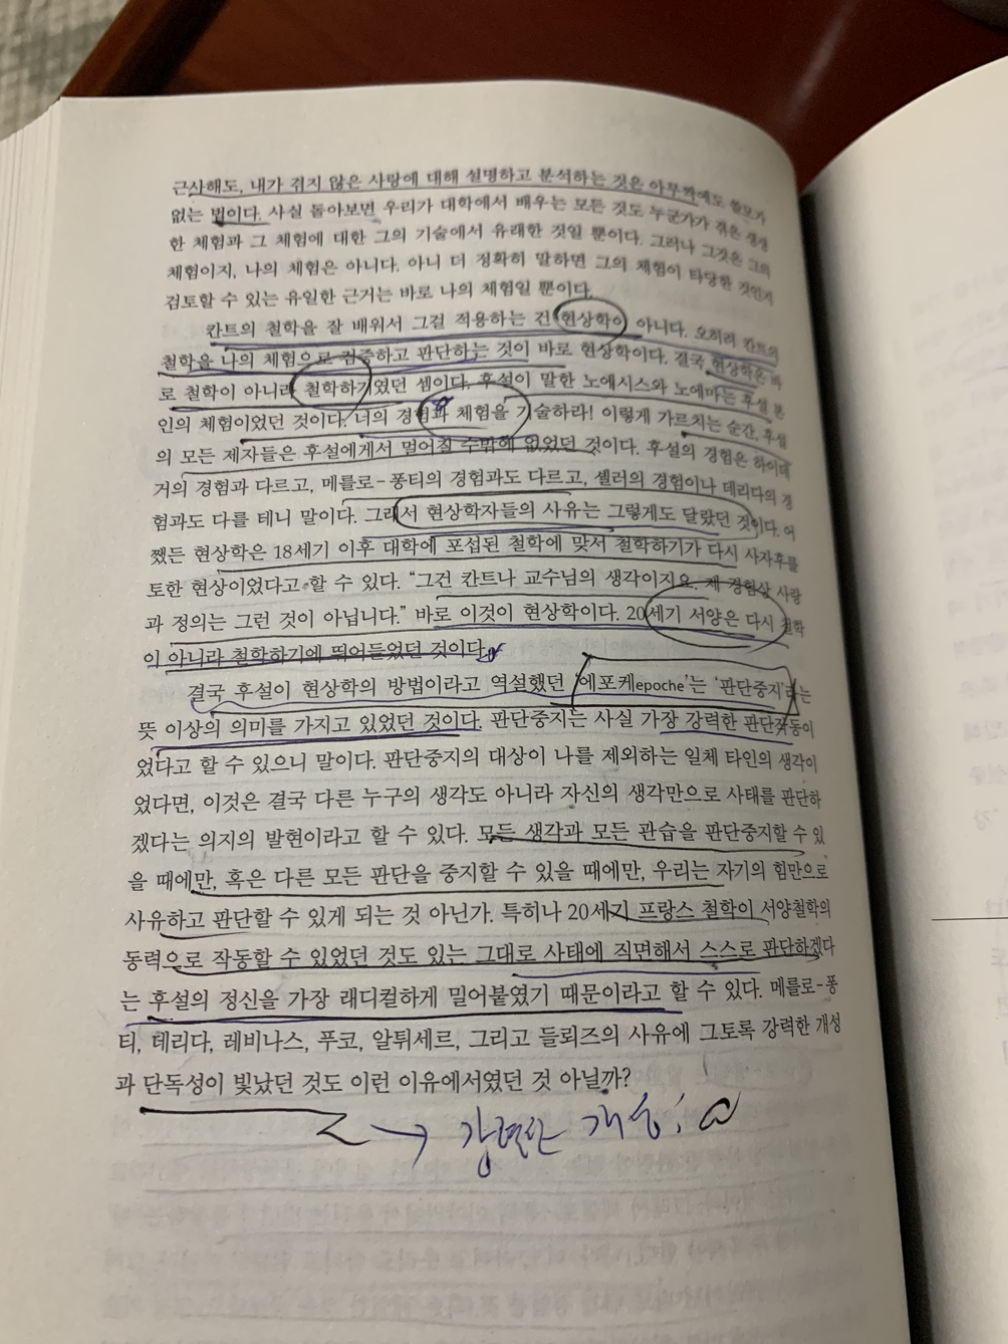 근사해도, 내가 겪지 않은 사랑에 대해 설명하고 분석하는 것은 아무짝에도 쓸모가
없는 법이다. 사실 돌아보면 우리가 대학에서 배우는 모든 것도 누군가가 겪은 생생
한 체험과 그 체험에 대한 그의 기술에서 유래한 것일 뿐이다. 그러나 그것은 그의
체험이지, 나의 체험은 아니다. 아니 더 정확히 말하면 그의 체험이 타당한 것인지
검토할 수 있는 유일한 근거는 바로 나의 체험일 뿐이다.
칸트의 철학을 잘 배워서 그걸 적용하는 건 현상학이 아니다. 오히려 칸트의
철학을 나의 체험으로 검증하고 판단하는 것이 바로 현상학이다. 결국 현상학은 바
로 철학이 아니라 철학하기였던 셈이다. 후설이 말한 노에시스와 노에마는 후설 본
인의 체험이었던 것이다. 너의 경험과 체험을 기술하라! 이렇게 가르치는 순간, 후설
의 모든 제자들은 후설에게서 멀어질 수밖에 없었던 것이다. 후설의 경험은 하이데
거의 경험과 다르고, 메를로-퐁티의 경험과도 다르고, 셸러의 경험이나 데리다의 경
험과도 다를 테니 말이다. 그래서 현상학자들의 사유는 그렇게도 달랐던 것이다. 어
쨌든 현상학은 18세기 이후 대학에 포섭된 철학에 맞서 철학하기가 다시 사자후를
토한 현상이었다고 할 수 있다. “그건 칸트나 교수님의 생각이지요. 제 경험상 사랑
과 정의는 그런 것이 아닙니다.” 바로 이것이 현상학이다. 20세기 서양은 다시 철학
이 아니라 철학하기에 뛰어들었던 것이다.
결국 후설이 현상학의 방법이라고 역설했던 ‘에포케epoche’는 ‘판단중지’라는
뜻 이상의 의미를 가지고 있었던 것이다. 판단중지는 사실 가장 강력한 판단작동이
었다고 할 수 있으니 말이다. 판단중지의 대상이 나를 제외하는 일체 타인의 생각이
었다면, 이것은 결국 다른 누구의 생각도 아니라 자신의 생각만으로 사태를 판단하
겠다는 의지의 발현이라고 할 수 있다. 모든 생각과 모든 관습을 판단중지할 수 있
을 때에만, 혹은 다른 모든 판단을 중지할 수 있을 때에만, 우리는 자기의 힘만으로
사유하고 판단할 수 있게 되는 것 아닌가. 특히나 20세기 프랑스 철학이 서양철학의
동력으로 작동할 수 있었던 것도 있는 그대로 사태에 직면해서 스스로 판단하겠다
는 후설의 정신을 가장 래디컬하게 밀어붙였기 때문이라고 할 수 있다. 메를로-퐁
티, 데리다, 레비나스, 푸코, 알튀세르, 그리고 들뢰즈의 사유에 그토록 강력한 개성
과 단독성이 빛났던 것도 이런 이유에서였던 것 아닐까?
→ 강렬한 개성!